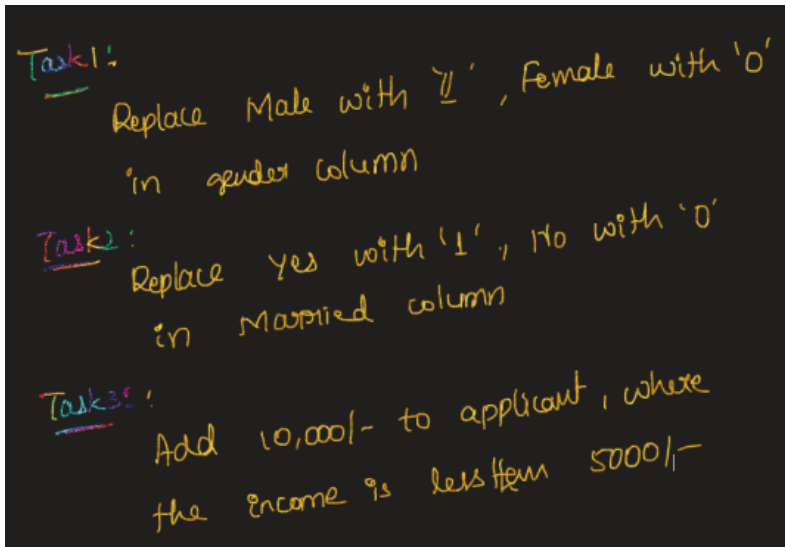 Task1:
Replace Male with '1', Female with '0'
in gender column
Task2:
Replace yes with '1', No with '0'
in Married column
Task3:
Add 10,000/- to applicant, where
the income is less than 5000/-